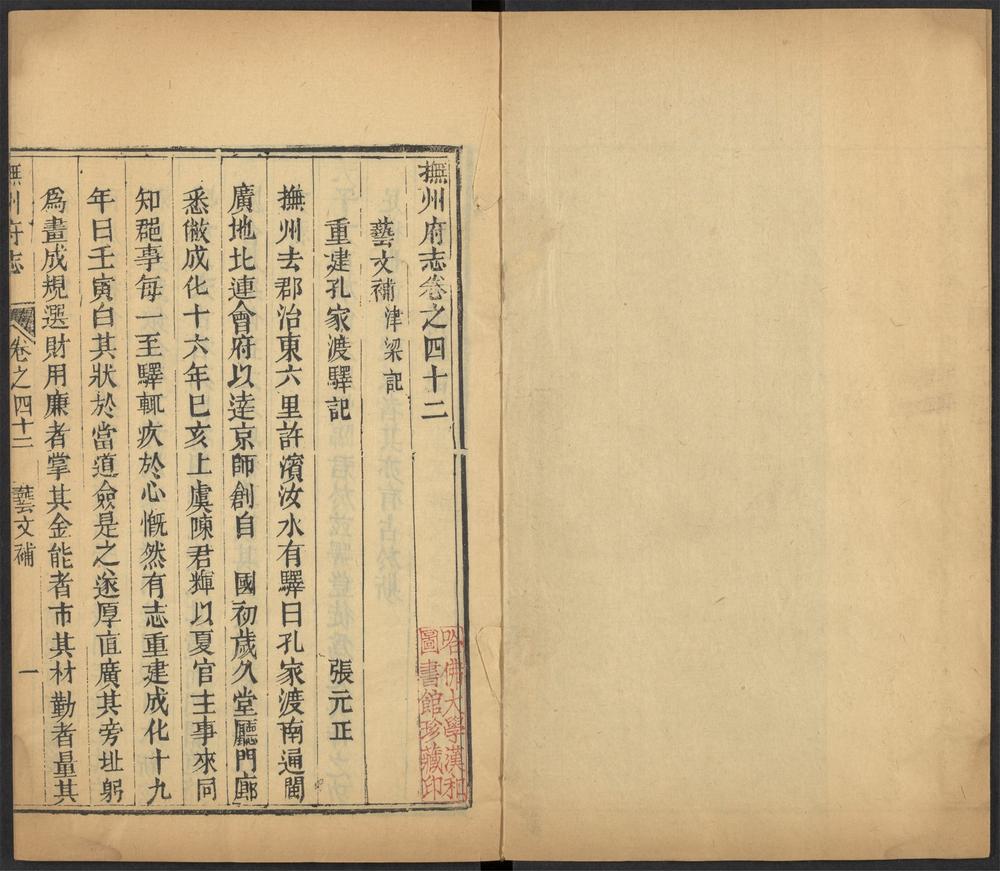 撫州府志卷之四十二
藝文補 津梁記
重建孔家渡驛記 張元正
撫州去郡治東六里許濱汝水有驛曰孔家渡南通閩
廣地北連會府以達京師創自 國初歲久堂廳門廊
悉敝成化十六年巳亥上虞陳君輝以夏官主事來同
知郡事每一至驛輒疚於心慨然有志重建成化十九
年曰壬寅白其狀於當道僉是之遂厚直廣其旁址躬
為畫成規選財用廉者掌其金能者市其材勤者量其
撫州府志 卷之四十二 藝文補 一
哈佛大學漢和
圖書館珍藏印